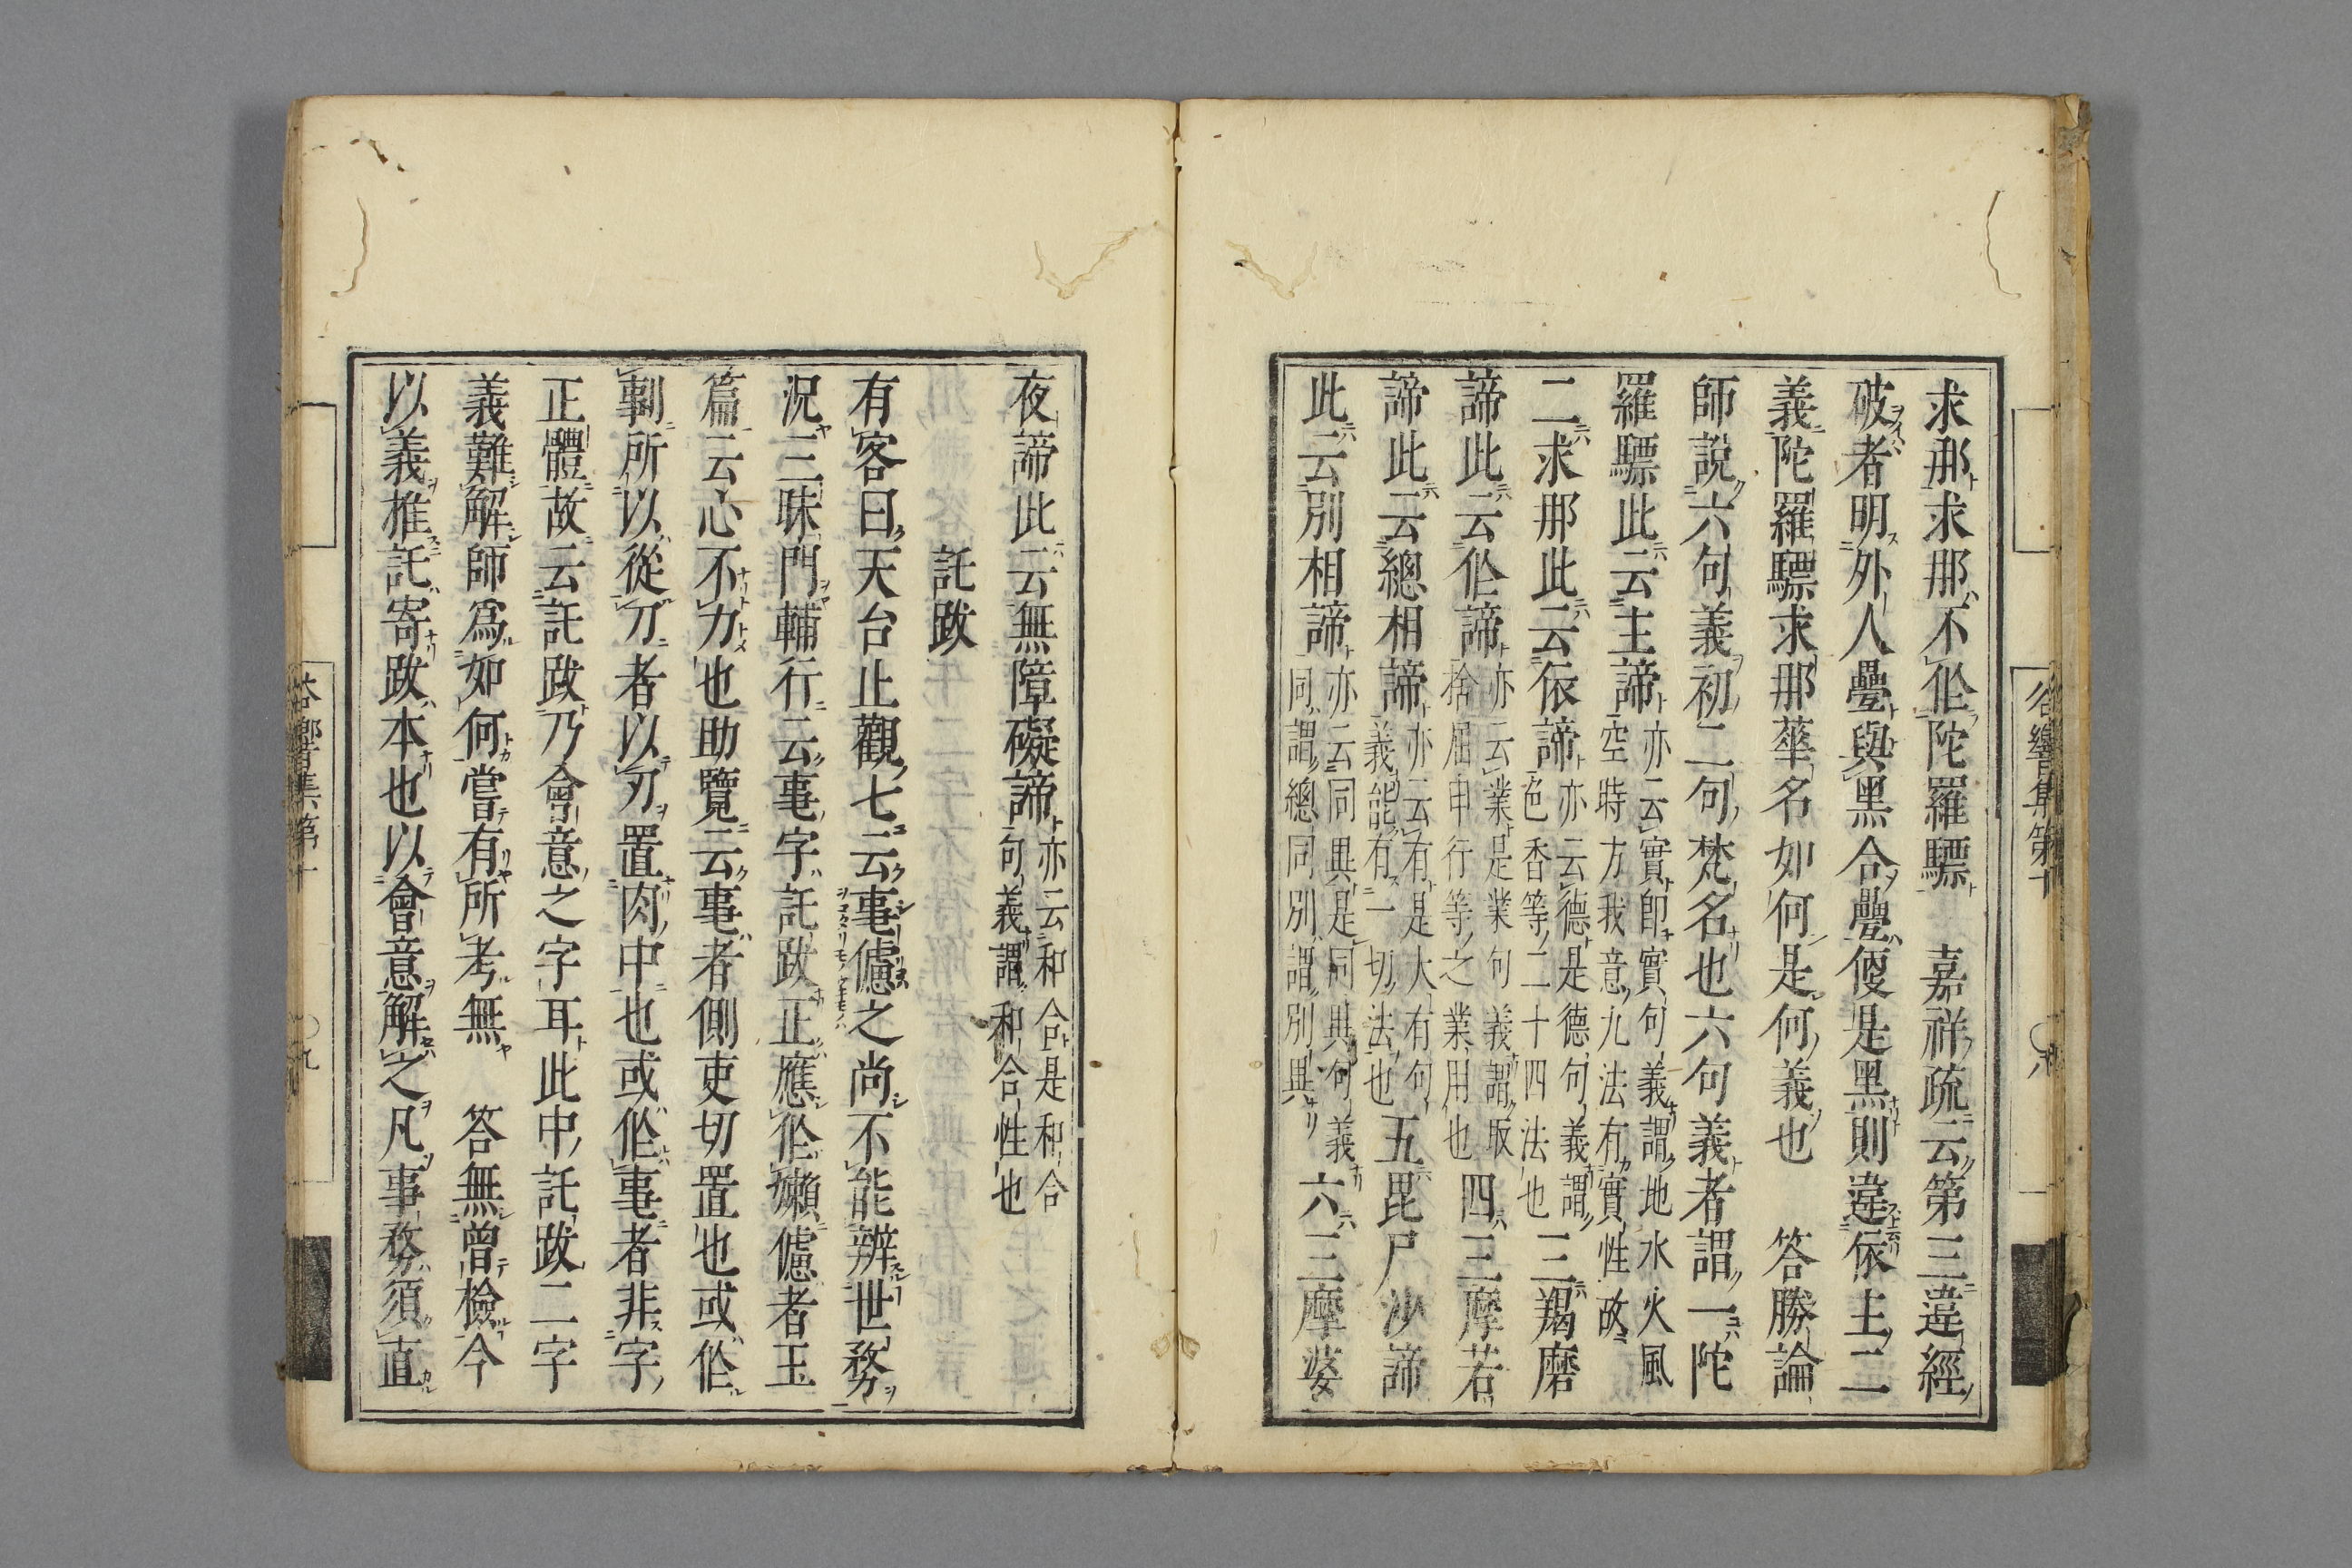 求那求那不作陀羅驃　嘉祥疏云第三違經
破者明外人疊與黒合疊便是黒則違依主二
義陀羅驃求那華名如何是何義也　答勝論
師説六句義初二句梵名也六句義者謂一陀
羅驃此云主諦亦云實即實句義謂地水火風
空時方我意九法有實性故
二求那此云依諦亦云德是德句義謂
色香等二十四法也三羯磨
諦此云作諦亦云業是業句義謂取
捨屈申行等之業用也四三摩若
諦此云總相諦亦云有是大有句
義能有一切法也五毘尸沙諦
此云別相諦亦云同異是同異句義
同謂總同別謂別異六三摩婆
夜諦此云無障礙諦亦云和合是和合
句義謂和合性也
託跋
有客曰天台止觀七云事儢之尚不能辨世務
況三昧門輔行云事字託跋正應作嬾儢者玉
篇云心不力也助覽云事者側吏切置也或作
剚所以從刀者以刃置肉中也或作事者非字
正體故云託跋乃會意之字耳此中託跋二字
義難解師爲如何嘗有所考無　答無曾檢今
以義推託寄跋本也以會意解之凡事務須直
谷響集第十
〇八
谷響集第十
〇九